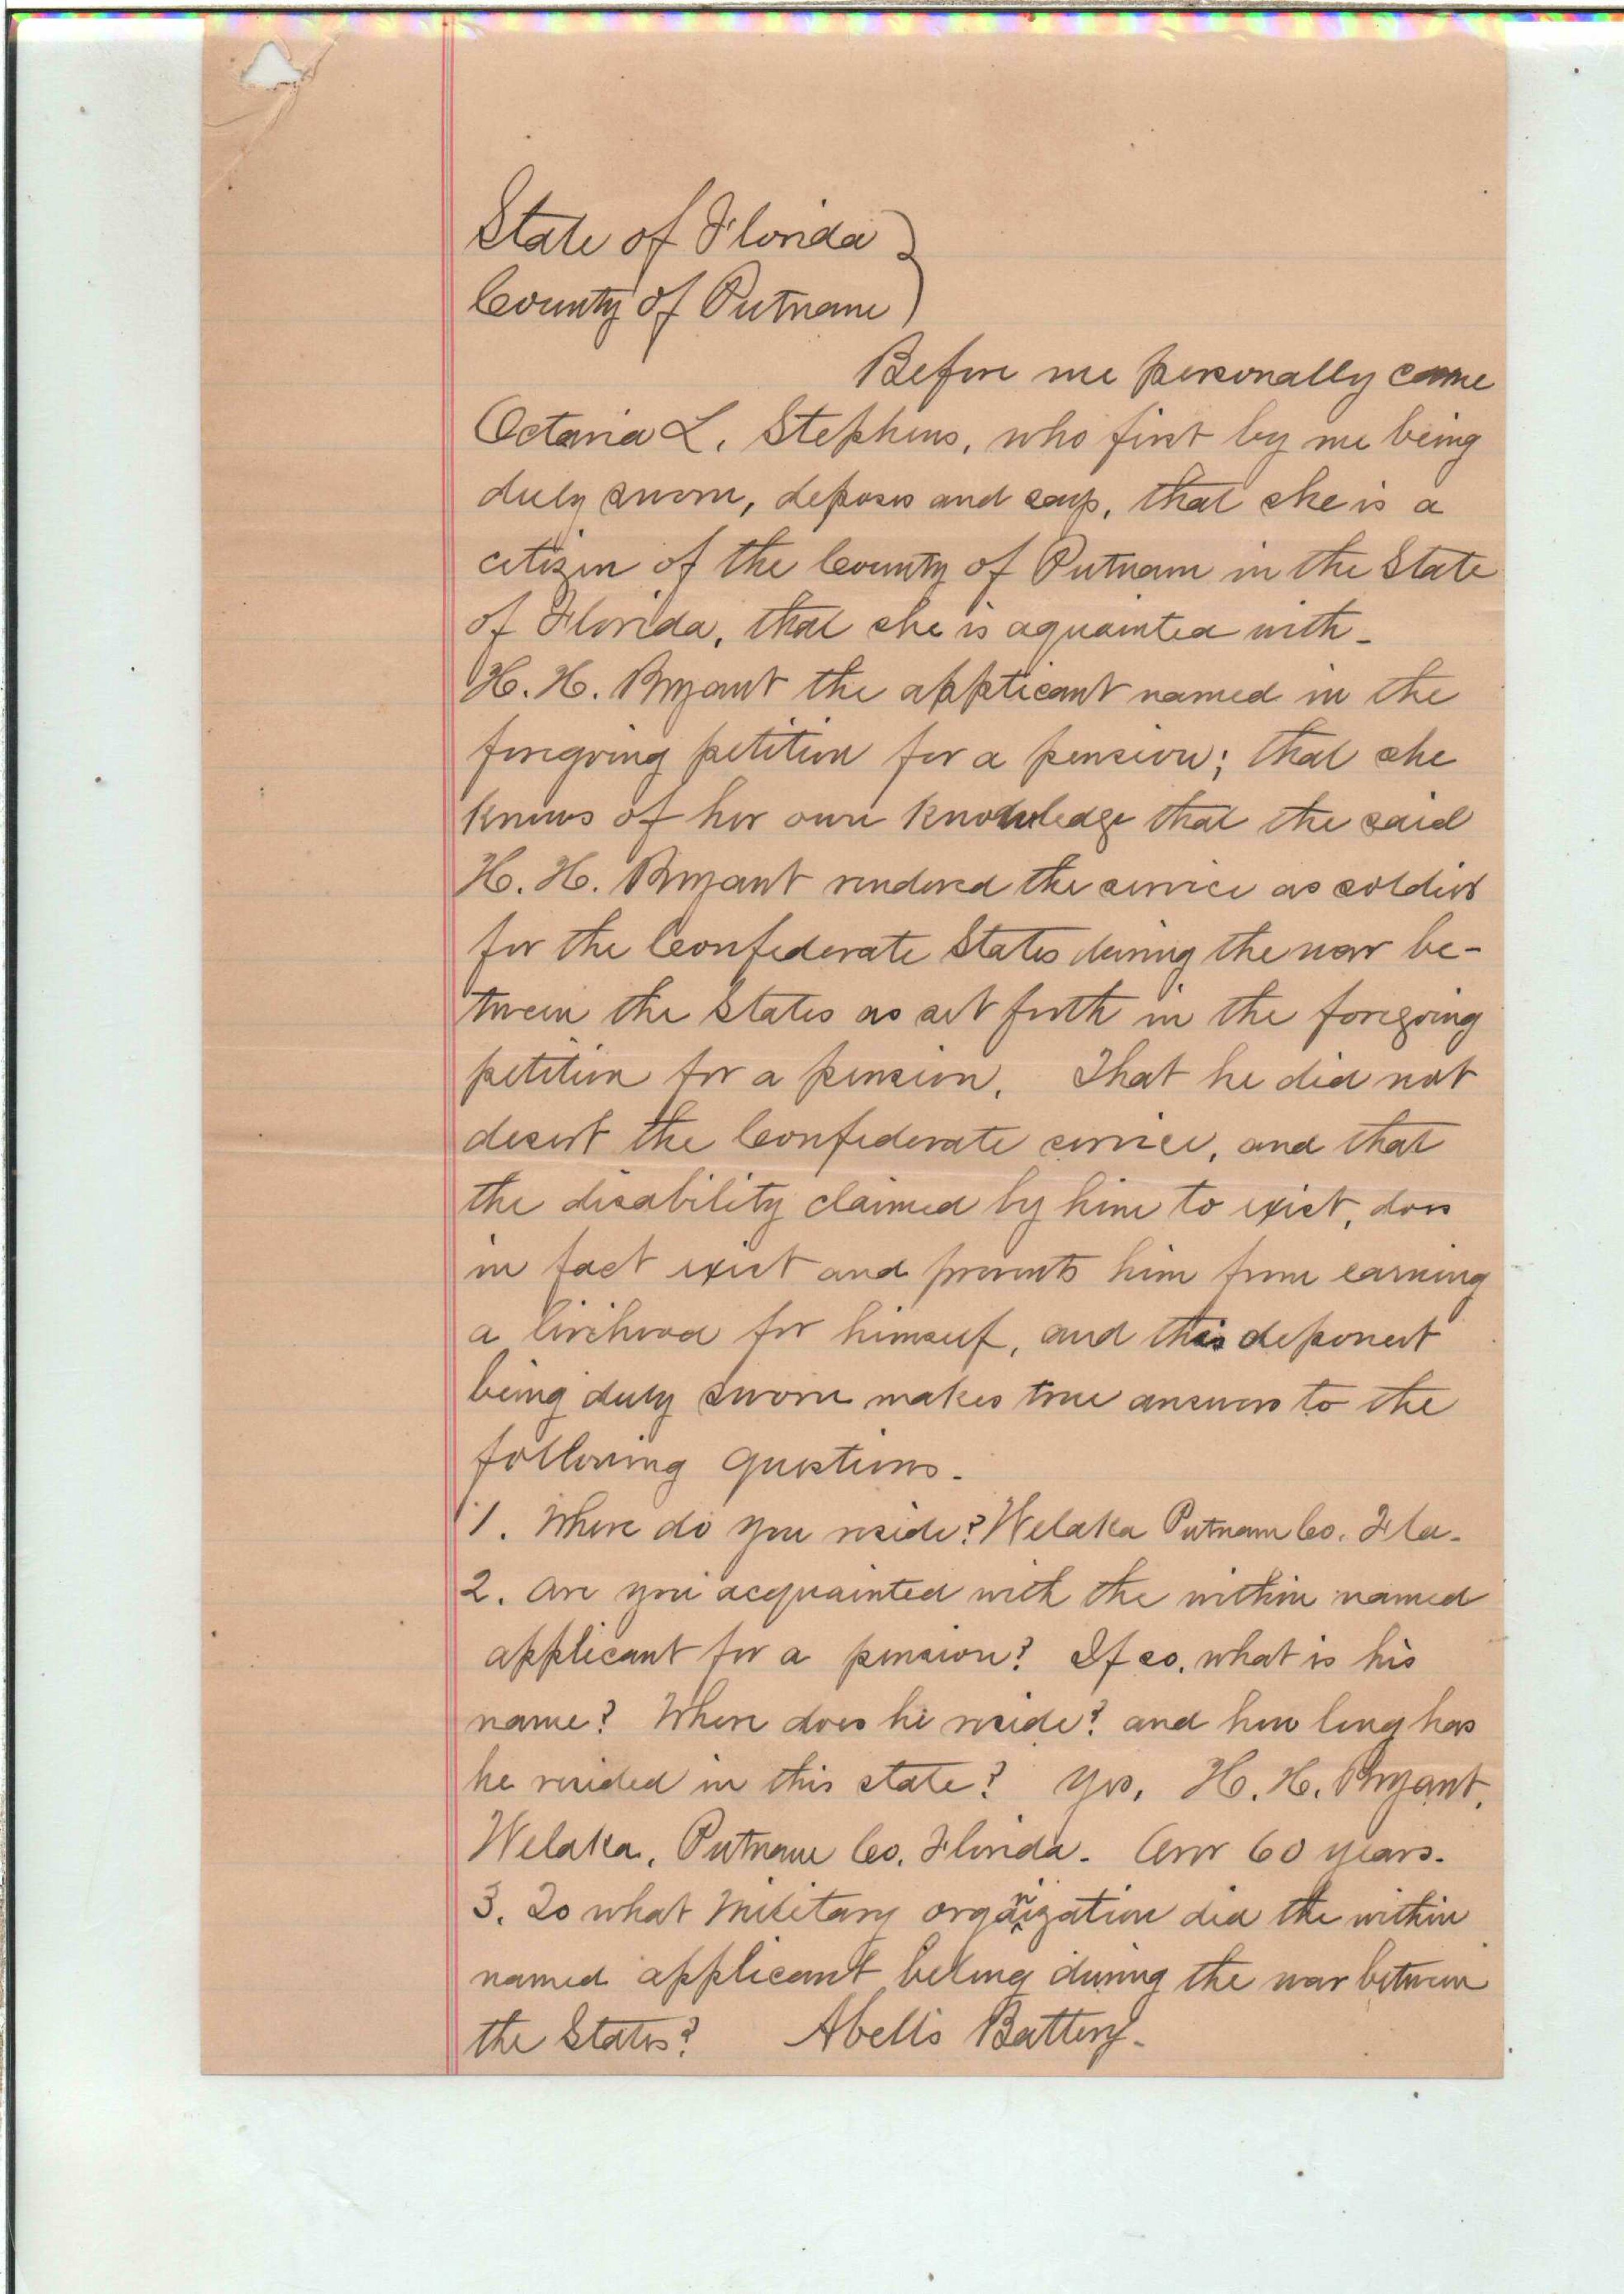 State of Florida )
County of Putnam )
Before me personally came
Octavia L. Stephens, who first by me being
duly sworn, deposes and says, that she is a
citizen of the County of Putnam in the State
of Florida, that she is aquainted with-
H. H. Bryant the applicant named in the
foregoing petition for a pension; that she
knows of her own knowledge that the said
H. H. Bryant rendered the service as soldier
for the Confederate States during the war be-
tween the States as set forth in the foregoing
petition for a pension. That he did not
desert the Confederate service, and that
the disability claimed by him to exist, does
in fact exist and prevents him from earning
a livelihood for himself, and this deponent
being duly sworn makes true answers to the
following questions.
1. Where do you reside? Welaka Putnam Co. Fla.
2. Are you acquainted with the within named
applicant for a pension? If so, what is his
name? Where does he reside? and how long has
he resided in this state? Yes. H. H. Bryant.
Welaka, Putnam Co. Florida. Over 60 years.
3. To what military organization did the within
named applicant belong during the war between
the States? Abell's Battery.